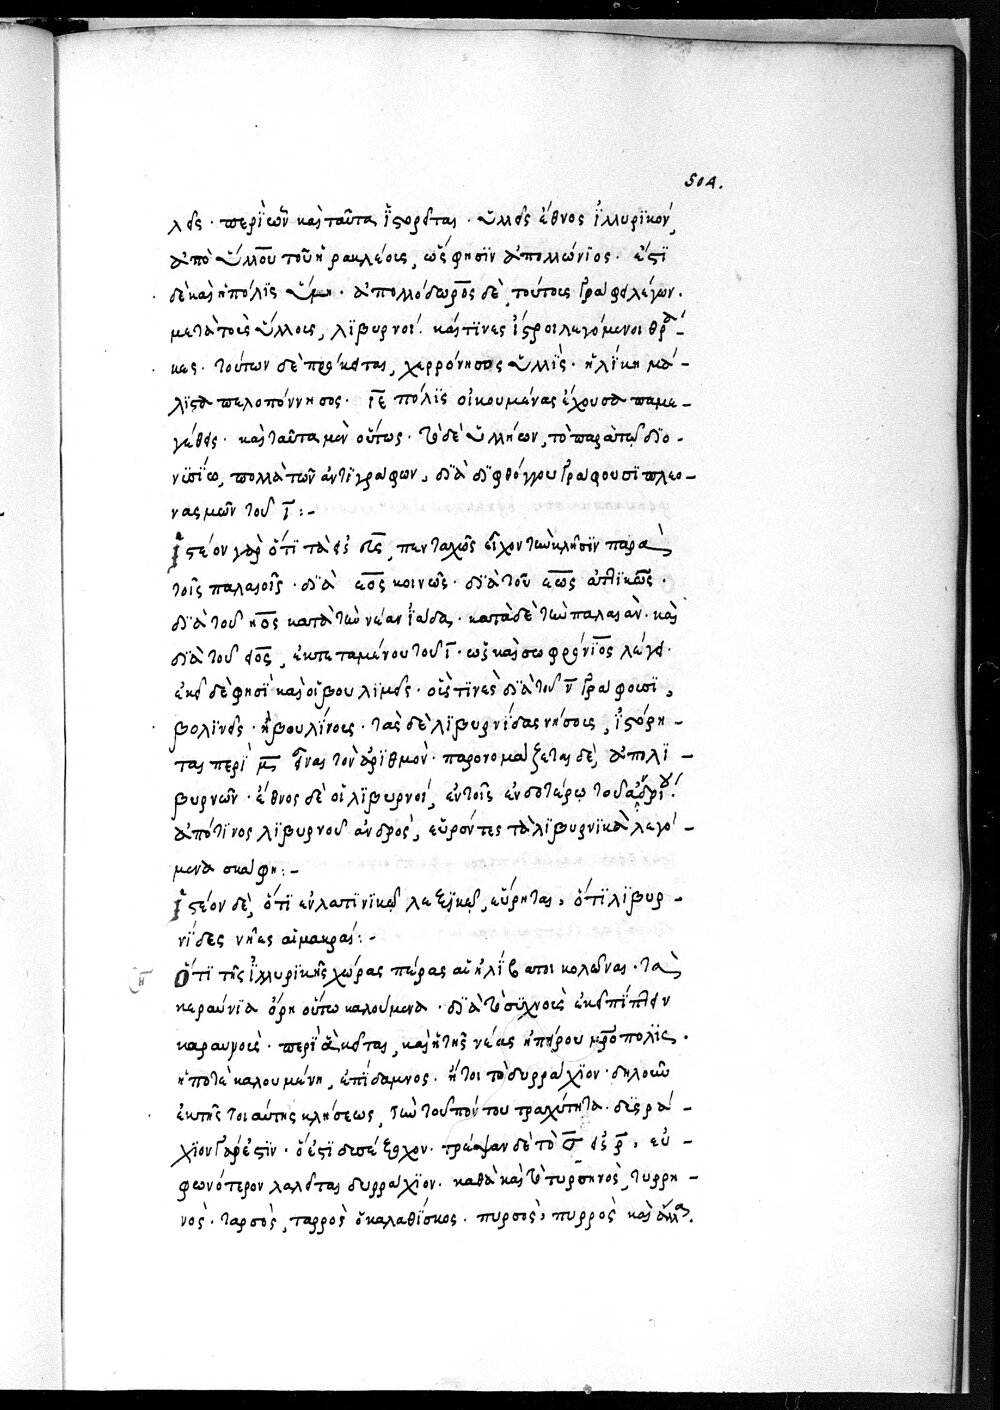 504.
λεῖς · περὶ ὧν καὶ ταῦτα ἱστορεῖται · ὕλλεις ἔθνος ἰλλυρικόν,
ἀπὸ ὕλλου τοῦ ἡρακλέους, ὥς φησιν ἀπολλώνιος · ἔστι
δὲ καὶ ἡ πόλις · ἀπολλόδωρος δὲ, τούτοις γράφει λέγων ·
μετὰ τοὺς ὕλλους, λιβυρνοί · καί τινες ἴστροι λεγόμενοι θρᾷ-
κες · τούτων δὲ πρόκειται, χερρόνησος ὕλλις · ἡλίκη μά-
λιστα πελοπόννησος · ιε πόλις οἰκουμένας ἔχουσα παμε-
γέθεις · καὶ ταῦτα μὲν οὕτως · τὸ δὲ ὑλλήων, τὸ παρὰ τῷ διο-
νυσίῳ, πολλὰ τῶν ἀντιγράφων, διὰ διφθόγγου γράφουσι πλεο-
νασμῶν τοῦ ι :-
Ἰστέον γὰρ ὅτι τὰ εἰς εις, πενταχῶς εἶχον τὴν κλῆσιν παρὰ
τοῖς παλαιοῖς · διὰ εος κοινῶς · διὰ τοῦ εως ἀττικῶς ·
διὰ τοῦ ηος κατὰ τὴν νέαν ἰάδα · κατὰ δὲ τὴν παλαιὰν · καὶ
διὰ τοῦ ειος, ἐκπεταμένου τοῦ ι · ὡς καὶ σωφρόνιος λέγει ·
ἐκεῖ δὲ φησὶ καὶ οἱ βουλιμεῖς · οὕς τινες διὰ τοῦ ν γράφουσι,
βολινεῖς · ἢ βουλίνους · τὰς δὲ λιβυρνίδας νήσους, ἱστόρη-
ται περὶ μ εἶναι τὸν ἀριθμὸν · παρονομάζεται δὲ, ἀπὸ λι-
βυρνῶν · ἔθνος δὲ οἱ λιβυρνοί, ἐν τοῖς ἐνδοτέρω τοῦ ἀδρίου ·
ἀπό τινος λιβυρνοῦ ἀνδρὸς, εὑρόντες τὰ λιβυρνικὰ λεγό-
μενα σκάφη :-
Ἰστέον δὲ, ὅτι ἐν λατινικῷ λεξικῷ, εὕρηται, ὅτι λιβυρ-
νίδες νῆες αἱ μακραί :-
Ὅτι τῆς ἰλλυρικῆς χώρας πέρας αἱ ἠλίβατοι κολῶναι · τὰ
κεραύνια ὄρη οὕτω καλούμενα · διὰ τὸ συχνοὺς ἐκεῖ πίπτειν
κεραυνούς · περὶ ἃ κεῖται, καὶ ἡ τῆς νέας ἠπείρου μητρόπολις ·
ἡ ποτὲ καλουμένη, ἐπίδαμνος · ἤτοι τὸ δυρράχιον · δηλούσης
ἐκ τῆς τοιαύτης κλήσεως, τὴν τοῦ πόντου τραχύτητα · δυσρά-
χιον γάρ ἐστιν · ὅ ἐστι δυσέξοχον · τρέψαν δὲ τὸ σ εἰς ρ, εὐ-
φωνότερον λαλεῖται δυρράχιον · καθὰ καὶ τὸ τυρσηνὸς, τυρρη-
νὸς · ταρσὸς, ταρρὸς ὁ καλαθίσκος · πυρσὸς, πυρρὸς καὶ ἄλλα.
η